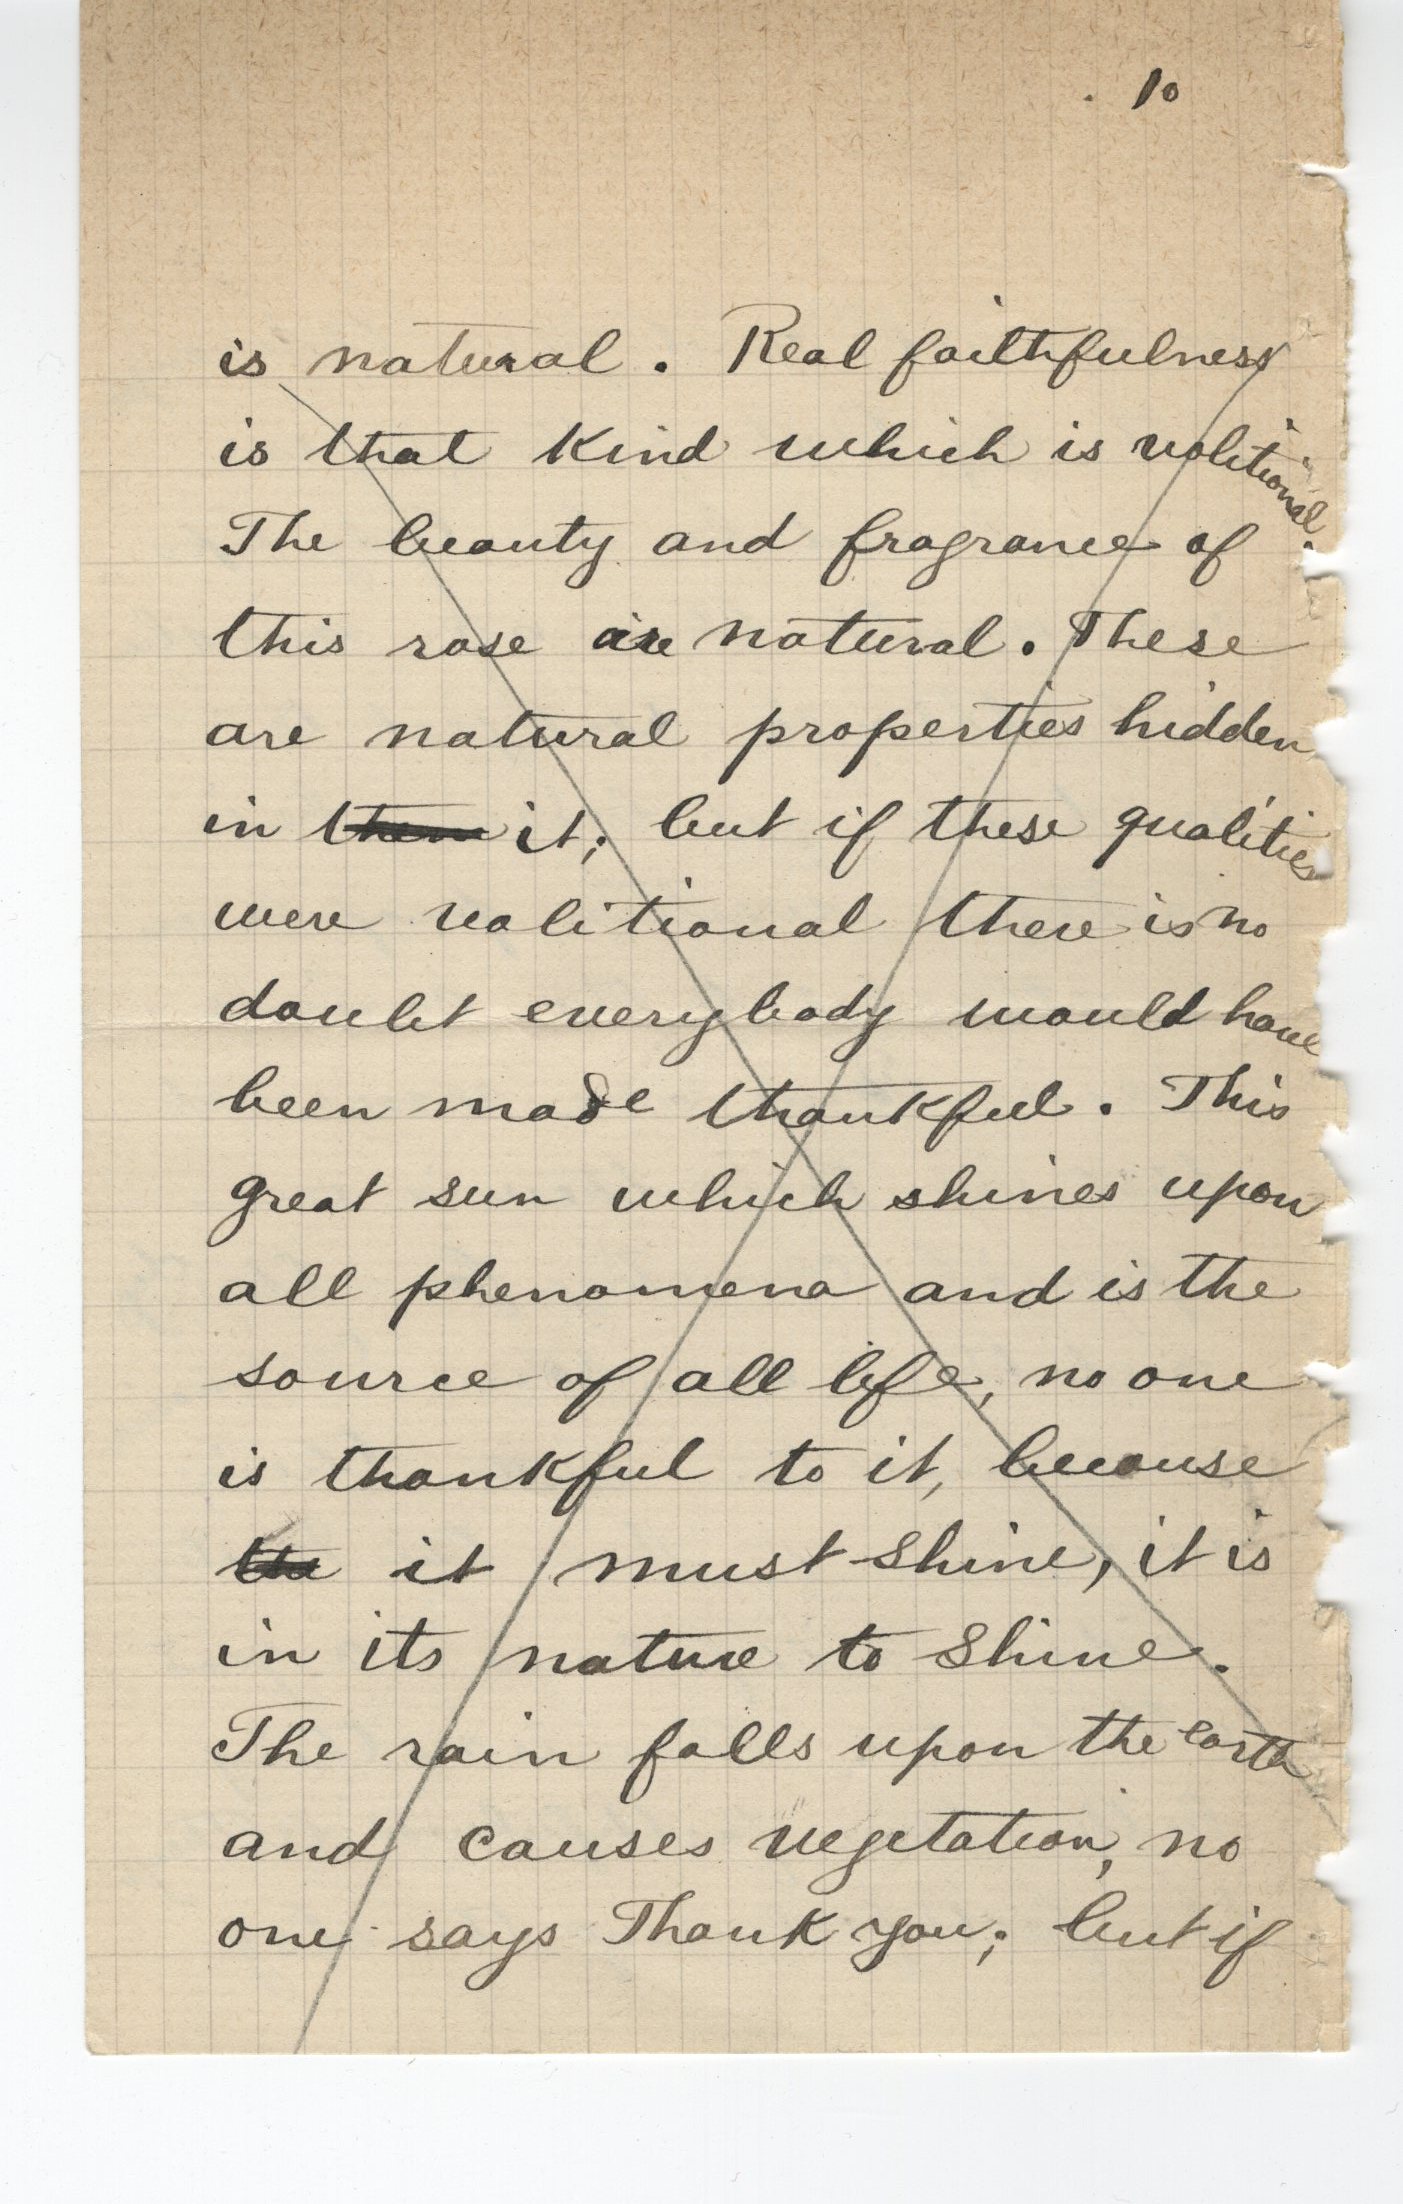 10
is natural. Real faithfulness
is that kind which is volitional.
The beauty and fragrance of
this rose are natural. These
are natural properties hidden
in them it; but if these qualities
were volitional there is no
doubt everybody would have
been made thankful. This
great sun which shines upon
all phenomena and is the
source of all life, no one
is thankful to it, because
it must shine, it is
in its nature to shine.
The rain falls upon the earth
and causes vegetation, no
one says Thank you; but if